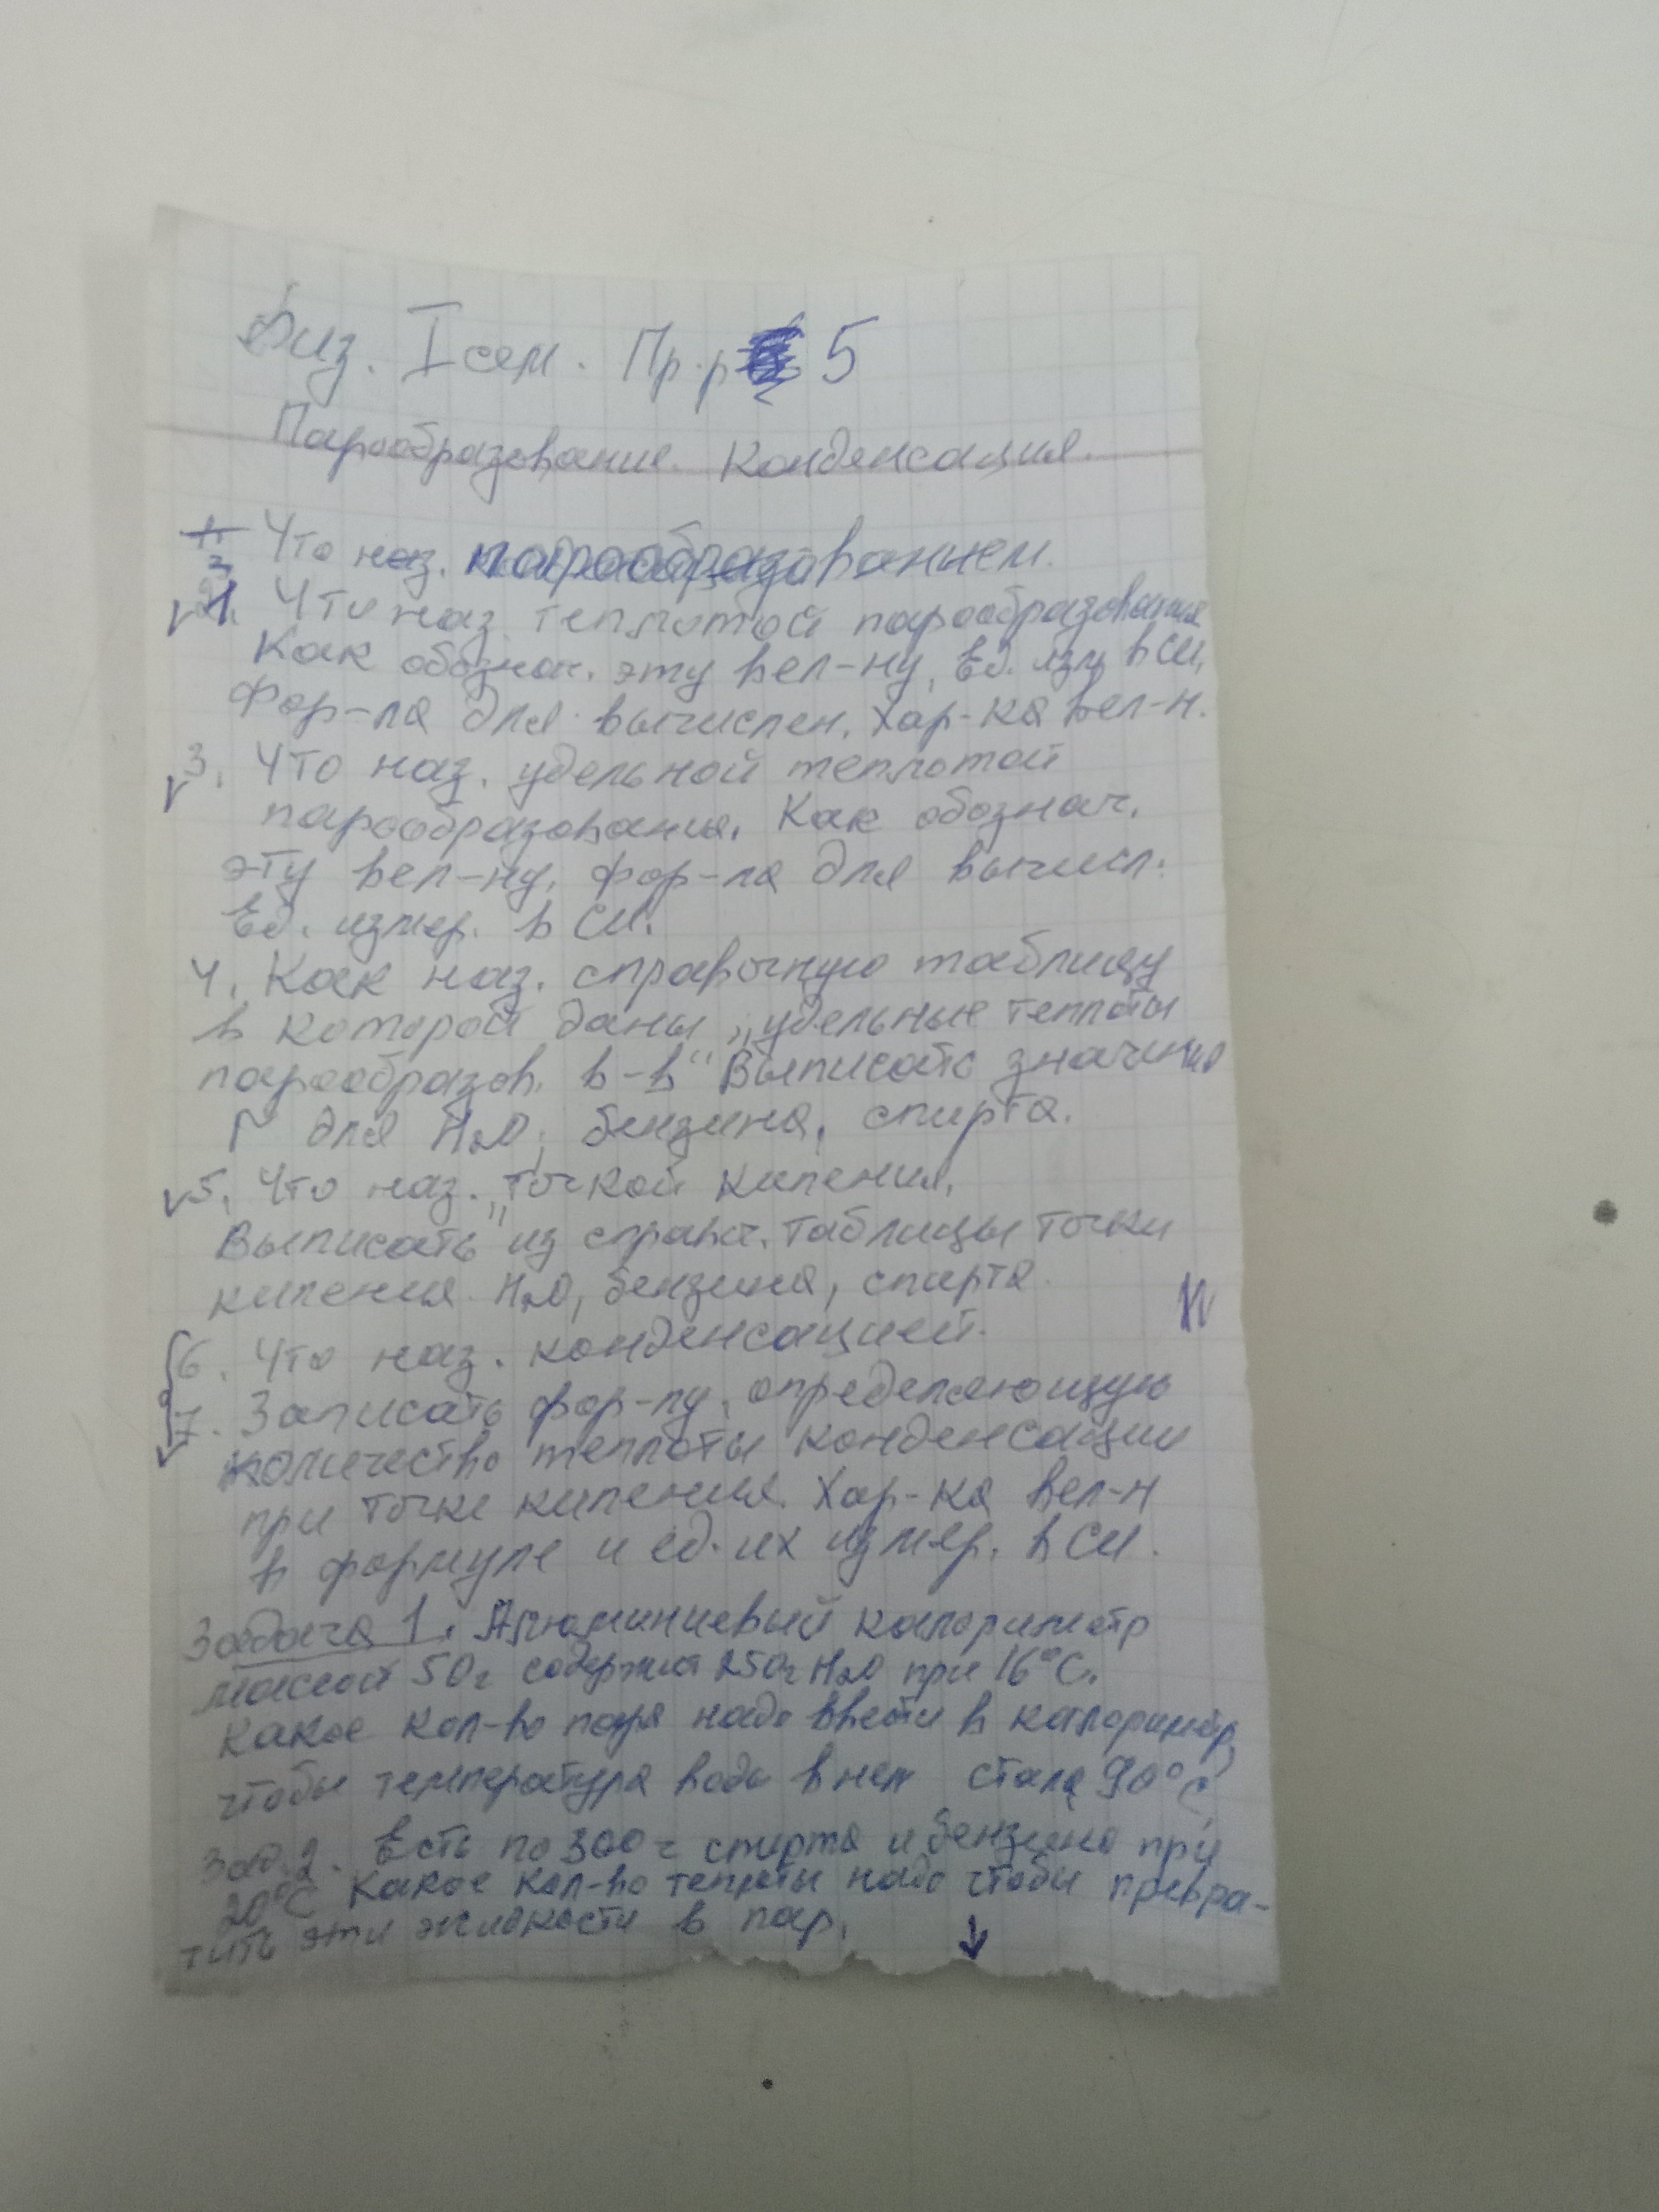 Физ. I сем. Пр.р 5
Парообразование. Конденсация.
Что наз. парообразованием.
Что наз. теплотой парообразования
Как обознач. эту вел-ну, Ед. изм. в СИ,
Фор-ла для вычислен. Хар-ка вел-н.
3. Что наз. удельной теплотой
парообразования. Как обознач.
эту вел-ну. Фор-ла для вычисл.
Ед. измер. в СИ.
4. Как наз. справочную таблицу
в которой даны „удельные теплоты
парообразов. в-в" Выписать значения
r для H₂O, бензина, спирта.
√5. Что наз. „точкой кипения.
Выписать" из справоч. таблицы точки
кипения H₂O, бензина, спирта.
6. Что наз. конденсацией.
7. Записать фор-лу, определяющую
количество теплоты конденсации
при точке кипения. Хар-ка вел-н
в формуле и ед. их измер. в СИ.
Задача 1. Алюминиевый калориметр
массой 50г содержит 250г H₂O при 16°С.
Какое кол-во пара надо ввести в калориметр,
чтобы температура воды в нем стала 90°С
Зад. 2. Есть по 300г спирта и бензина при
20°С Какое кол-во теплоты надо чтобы превра-
тить эти жидкости в пар.